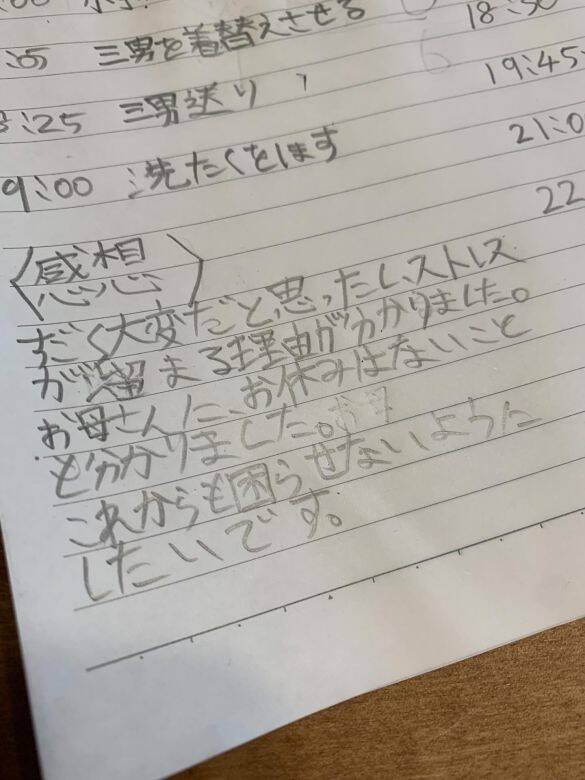 :05 三男を着替えさせる
18:30
8:25 三男送り
19:45
9:00 洗たくをします
21:0
22
〈感想〉
すごく大変だと思ったし、ストレス
が溜まる理由が分かりました。
お母さんに、お休みはないこと
が分かりました。
これからも困らせないように
したいです。